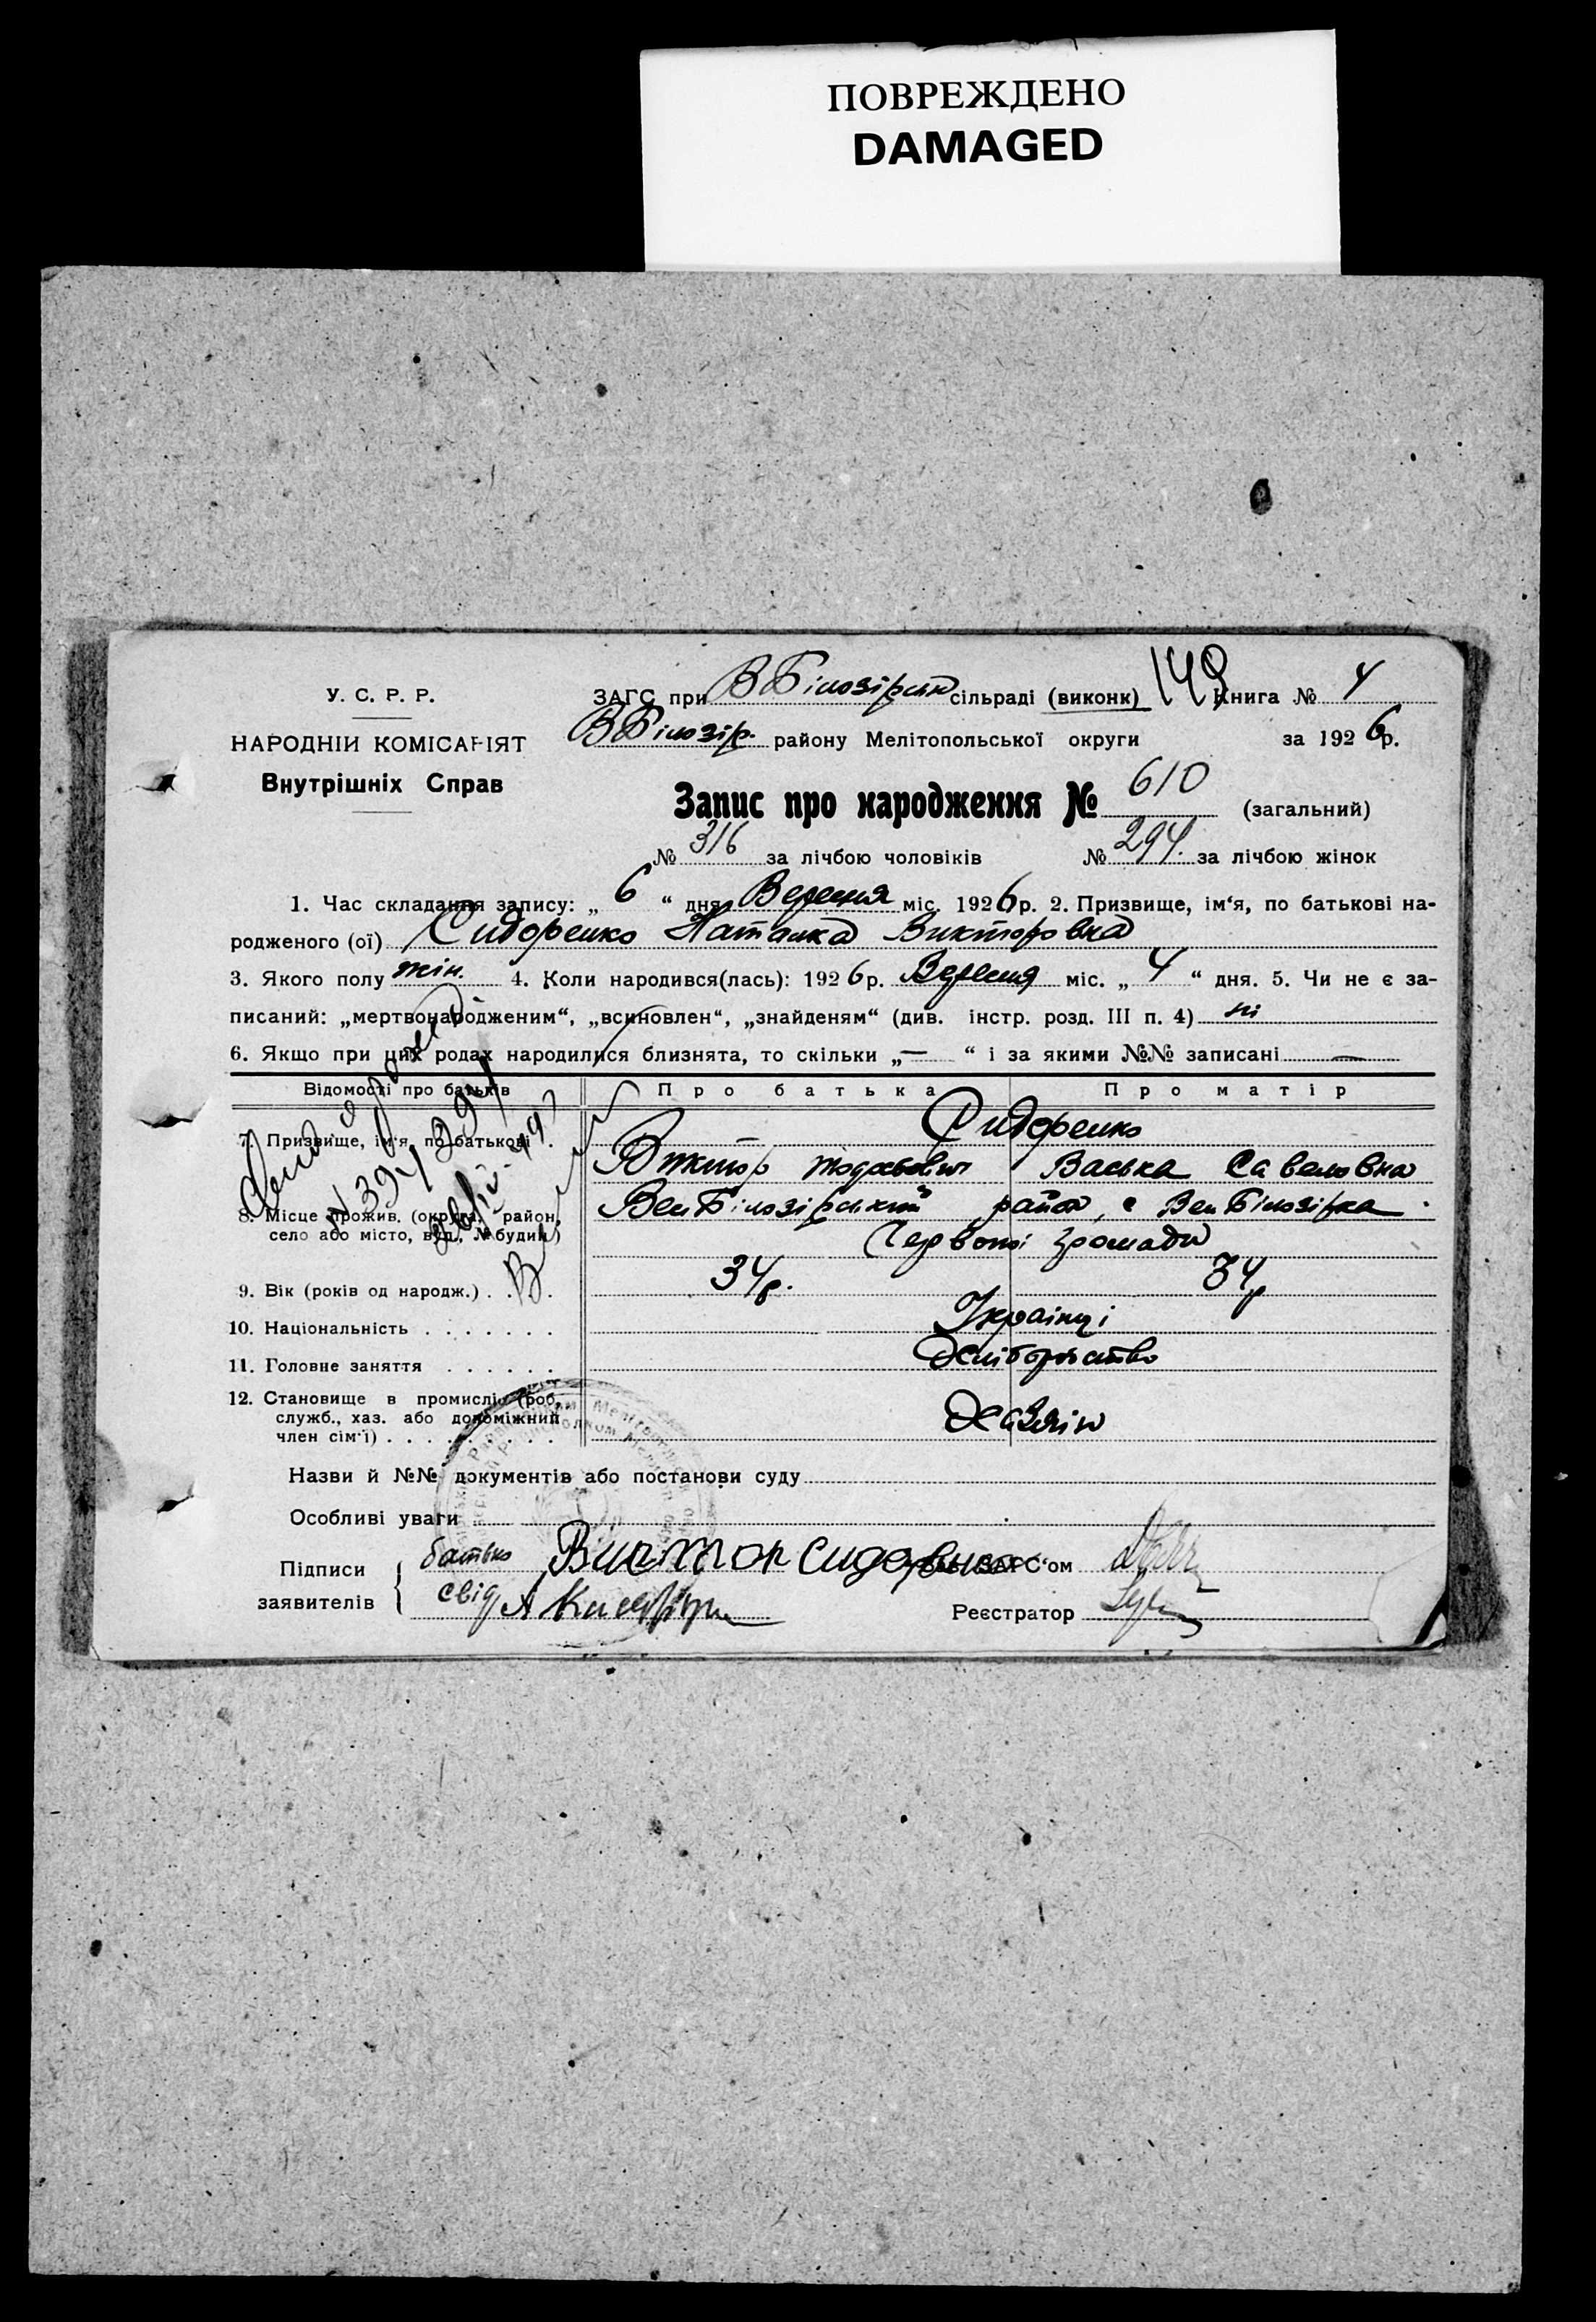 ПОВРЕЖДЕНО
DAMAGED
У. С. Р. Р.
НАРОДНІЙ КОМІСАРІЯТ
Внутрішніх Справ
ЗАГС при В Білозірськ сільраді (виконк) 149 Книга № 4
В Білозір. району Мелітопольської округи за 1926р.
Запис про народження № 610 (загальний)
№ 316 за лічбою чоловіків № 294. за лічбою жінок
1. Час складання запису: „ 6 “ дня Вересня міс. 1926р. 2. Призвище, ім‘я, по батькові на-
родженого (ої) Сидоренко Наталка Викторовна
3. Якого полу жін. 4. Коли народився(лась): 1926р. Вересня міс. „ 4 “ дня. 5. Чи не є за-
писаний: „мертвонародженим“, „всиновлен“, „знайденям“ (див. інстр. розд. III п. 4) ні
6. Якщо при цих родах народилися близнята, то скільки „—“ і за якими №№ записані —
Відомості про батьків Про батька Про матір
7. Призвище, ім‘я, по батькові . Сидоренко
Віктор Васька Савеловна
8. Місце прожив. (округа, район, село або місто, вул., № будин.) Вел Білозірський район, с Вел Білозірка
Червоної громади
9. Вік (років од народж.) . . . 34р. 34р
10. Національність . . . . . . . Українці
11. Головне заняття . . . . . . Хліборобство
12. Становище в промислі (роб., служб., хаз. або допоміжний член сім‘ї) . . . . . . . . . Хазяїн
N 394
Назви й №№ документів або постанови суду
Особливі уваги
Підписи заявителів батько Виктор Сидоренко ЗАГС‘ом
свід А
Реєстратор